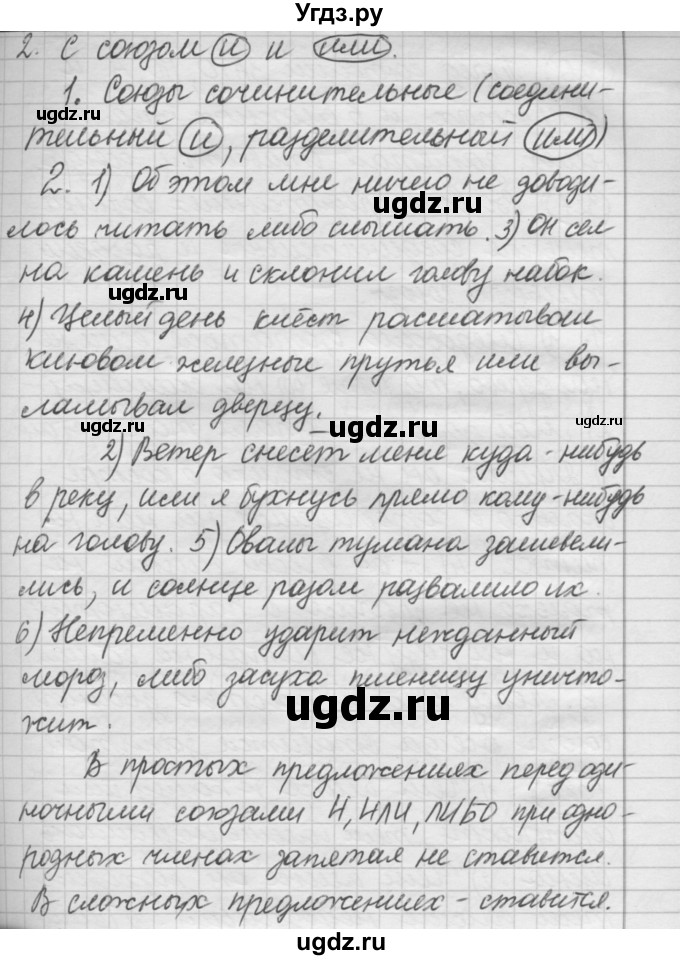 Угдз.ру
2. С союзом и и или.
1. Союзы сочинительные (соедини-
тельный и, разделительный или)
2. 1) Об этом мне ничего не доводи-
ugdz.ru
лось читать либо слышать. 3) Он сел
на камень и склонил голову набок.
ugdz.ru
4) Целый день клёст расшатывал
клювом железные прутья или вы-
ламывал дверцу.
ugdz.ru
2) Ветер снесёт меня куда-нибудь
в реку, или я бухнусь прямо кому-нибудь
на голову. 5) Овалы тумана зашевели-
лись, и солнце разом развалило их.
6) Непременно ударит нежданный
мороз, либо засуха пшеницу уничто-
ugdz.ru
жит.
В простых предложениях перед оди-
ночными союзами И, ИЛИ, ЛИБО при одно-
родных членах запятая не ставится.
В сложных предложениях - ставится.
ugdz.ru